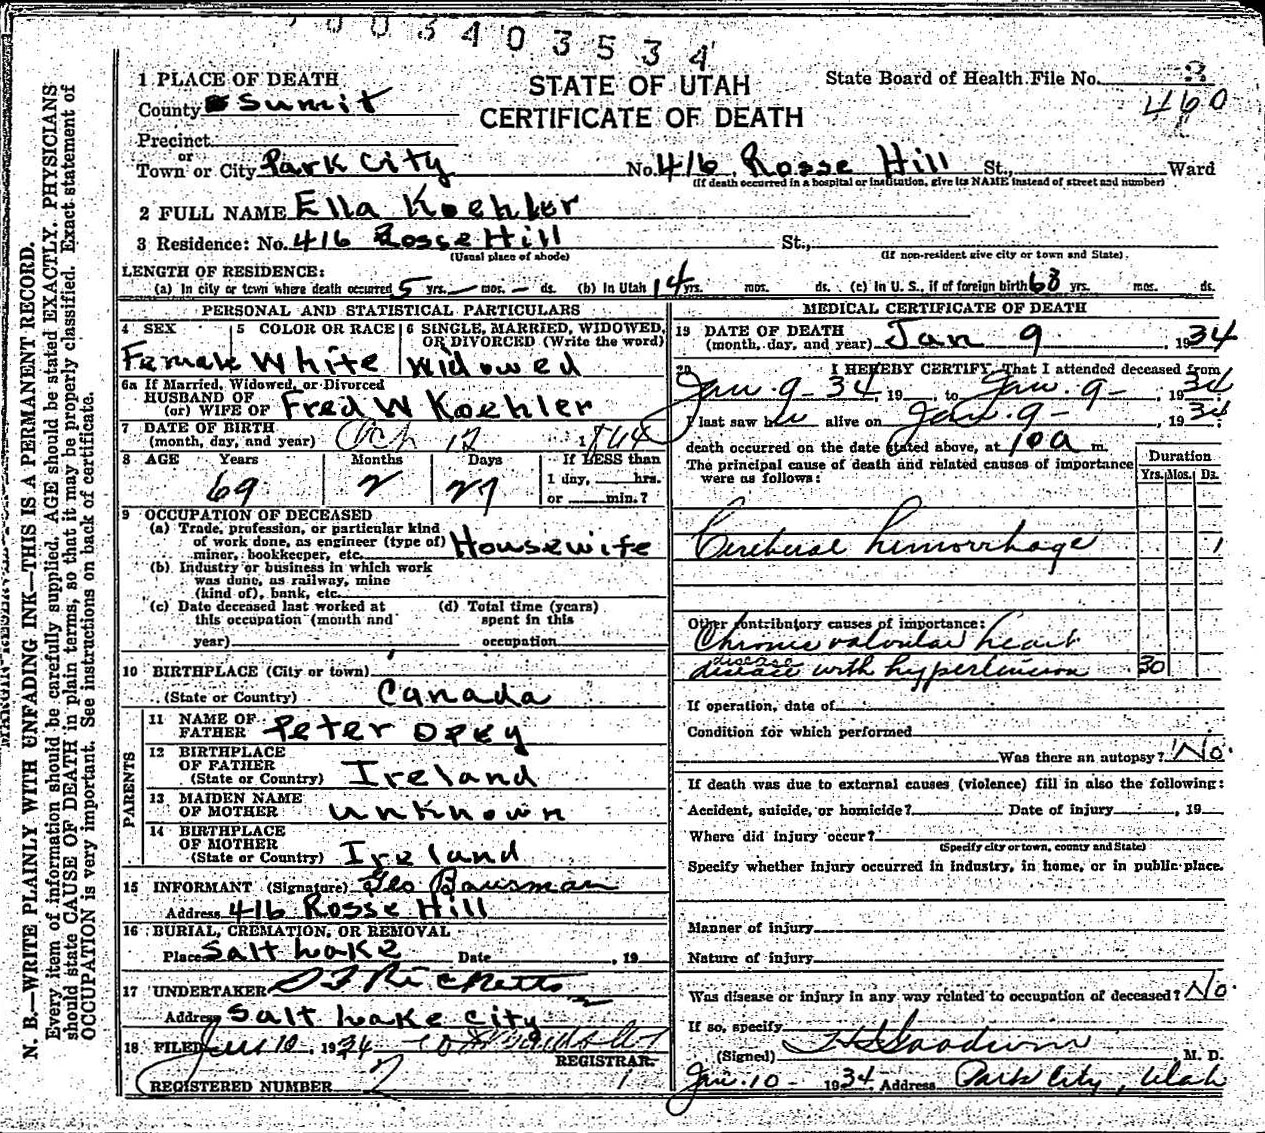 0 0 3 4 0 3 5 3 4
1 PLACE OF DEATH
STATE OF UTAH
CERTIFICATE OF DEATH
State Board of Health File No. 3
460
County Sumit
Precinct
or
Town or City Park City No. 416 Rosse Hill St., Ward
(If death occurred in a hospital or institution, give its NAME instead of street and number)
2 FULL NAME Ella Koehler
3 Residence: No. 416 Rosse Hill St.,
(Usual place of abode) (If non-resident give city or town and State).
LENGTH OF RESIDENCE:
(a) In city or town where death occurred 5 yrs. — mos. — ds. (b) In Utah 14 yrs. mos. ds. (c) In U. S., if of foreign birth 68 yrs. mos. ds.
PERSONAL AND STATISTICAL PARTICULARS
4 SEX 5 COLOR OR RACE 6 SINGLE, MARRIED, WIDOWED, OR DIVORCED (Write the word)
Female White Widowed
6a If Married, Widowed, or Divorced
HUSBAND OF
(or) WIFE OF Fred W Koehler
7 DATE OF BIRTH
(month, day, and year) Oct 12 1864
8 AGE Years Months Days If LESS than
1 day, hrs.
69 2 27 or min.?
9 OCCUPATION OF DECEASED
(a) Trade, profession, or particular kind
of work done, as engineer (type of)
miner, bookkeeper, etc. Housewife
(b) Industry or business in which work
was done, as railway, mine
(kind of), bank, etc.
(c) Date deceased last worked at
this occupation (month and
year)
(d) Total time (years)
spent in this
occupation
10 BIRTHPLACE (City or town)
(State or Country) Canada
PARENTS
11 NAME OF
FATHER Peter Opey
12 BIRTHPLACE
OF FATHER
(State or Country) Ireland
13 MAIDEN NAME
OF MOTHER Unknown
14 BIRTHPLACE
OF MOTHER
(State or Country) Ireland
15 INFORMANT (Signature) Geo Bausman
Address 416 Rosse Hill
16 BURIAL, CREMATION, OR REMOVAL
Place Salt Lake Date , 19
17 UNDERTAKER Ricketts
Address Salt Lake City
18 FILED Jan 10, 1934
REGISTRAR
REGISTERED NUMBER 2
MEDICAL CERTIFICATE OF DEATH
19 DATE OF DEATH
(month, day, and year) Jan 9 , 1934
20 I HEREBY CERTIFY, That I attended deceased from
Jan 9 - 34 19 to Jan. 9 - , 1934
I last saw h alive on Jan 9 - , 1934;
death occurred on the date stated above, at 10 a m.
The principal cause of death and related causes of importance
were as follows:
Duration
Yrs. Mos. Ds.
Cerebral hemorrhage 1
Other contributory causes of importance:
Chronic valvular heart
disease
disease with hypertension 30
If operation, date of
Condition for which performed
Was there an autopsy? No.
If death was due to external causes (violence) fill in also the following:
Accident, suicide, or homicide? Date of injury , 19
Where did injury occur?
(Specify city or town, county and State)
Specify whether injury occurred in industry, in home, or in public place.
Manner of injury
Nature of injury
Was disease or injury in any way related to occupation of deceased? No.
If so, specify
(Signed) Goodwin M. D.
Jan. 10 - 1934 Address Park City, Utah
N. B.—WRITE PLAINLY WITH UNFADING INK—THIS IS A PERMANENT RECORD.
Every item of information should be carefully supplied. AGE should be stated EXACTLY. PHYSICIANS
should state CAUSE OF DEATH in plain terms, so that it may be properly classified. Exact statement of
OCCUPATION is very important. See instructions on back of certificate.